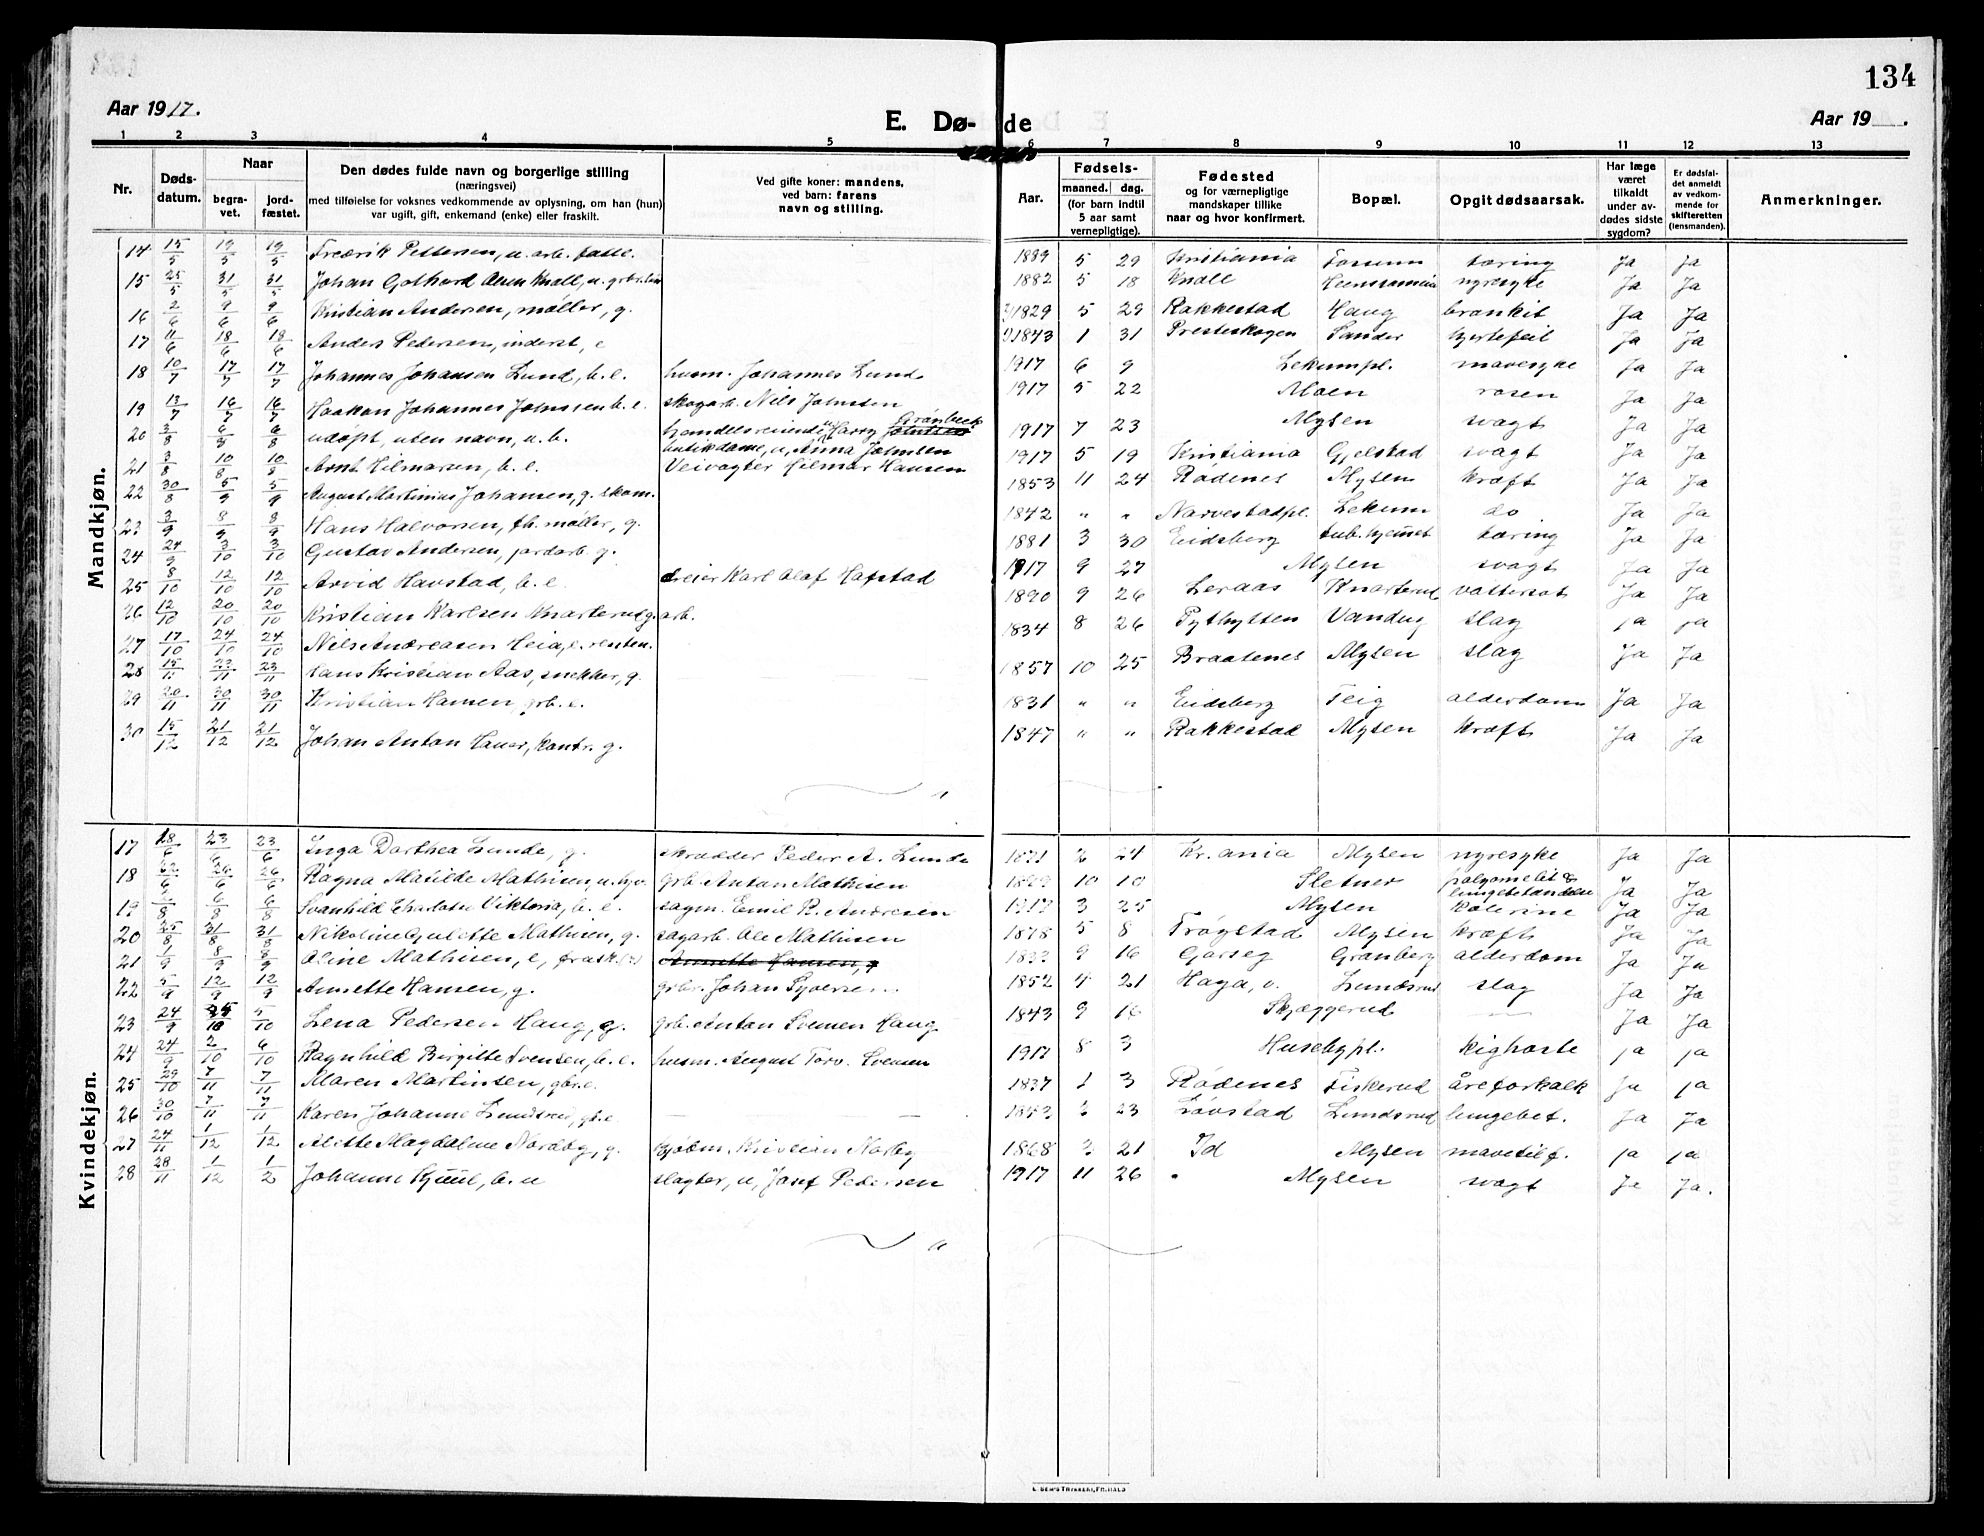 134
Aar 1917.
E. Dø- de
Aar 19 .
1 2 3 4 5 6 7 8 9 10 11 12 13
Nr.
Døds-datum.
Naar
begra-vet.
jord-fæstet.
Den dødes fulde navn og borgerlige stilling
(næringsvei)
med tilføielse for voksnes vedkommende av oplysning, om han (hun)
var ugift, gift, enkemand (enke) eller fraskilt.
Ved gifte koner: mandens,
ved barn: farens
navn og stilling.
Aar.
Fødsels-
maaned. dag.
(for barn indtil
5 aar samt
vernepligtige).
Fødested
og for værnepligtige
mandskaper tillike
naar og hvor konfirmert.
Bopæl.
Opgit dødsaarsak.
Har læge
været
tilkaldt
under av-
dødes sidste
sygdom?
Er dødsfal-
det anmeldt
av vedkom-
mende for
skifteretten
(lensmanden).
Anmerkninger.
Mandkjøn.
14 15/5 19/5 19/5 Fredrik Pettersen, u. arb. 1889 5 29 Kristiania Fossum tæring Ja Ja
15 25/5 31/5 31/5 Johan Gothard Olsen Knoll, u. 1882 5 18 Knoll nyresyke Ja Ja
16 2/6 9/6 9/6 Kristian Andersen, møller, g. 1829 5 29 Rakkestad Haug bronkit Ja Ja
17 11/6 18/6 18/6 Anders Pedersen, inderst, e 1843 1 31 Presteskogen Sander hjertefeil Ja Ja
18 10/7 17/7 17/7 Johannes Johansen Lund, b. e. husm. Johannes Lund 1917 6 9 Lekumpl. mavesyke Ja Ja
19 13/7 16/7 16/7 Haakon Johannes Johnssen b. e. skogarb. Nils Johnsen 1917 5 22 Moen rosen Ja Ja
20 3/8 6/8 6/8 udøpt, uten navn, u. b. handelsreisende Harry Grønbeck
butikdame, u, Anna Johnsen 1917 7 23 Mysen svagt Ja Ja
21 3/8 10/8 10/8 Arnt Hilmarsen, b. e. Veivogter Hilmar Hansen 1917 5 19 Kristiania Gjelstad svagt Ja Ja
22 30/8 5/9 5/9 August Martinius Johansen, g. skom. 1853 11 24 Rødenes Mysen kræft Ja Ja
23 3/9 8/9 8/9 Hans Halvorsen, fh. møller, g. 1842 " " Narvestadpl. Lekum do Ja Ja
24 24/9 3/10 3/10 Gustav Andersen, jordarb. g. 1881 3 30 Eidsberg tub. hjemmet tæring Ja Ja
25 8/10 12/10 12/10 Arvid Havstad, b. e. dreier Karl Olaf Hafstad 1917 9 27 Mysen svagt Ja Ja
26 12/10 20/10 20/10 Kristian Karlsen Knarterud g. arb. 1890 9 26 Leraas Knarterud vattersot Ja Ja
27 17/10 24/10 24/10 Nils Andreasen Heia, e. renten. 1834 8 26 Vandug slag ja ja
28 15/11 23/11 23/11 Hans Kristian Aas, snekker, g. 1857 10 25 Braatenes Mysen slag Ja Ja
29 20/11 30/11 30/11 Kristian Hansen grb. e. 1831 " " Eidsberg Teig alderdom Ja Ja
30 15/12 21/12 21/12 Johan Anton Hauer, kontr. g. 1847 " " Rakkestad Mysen kræft Ja Ja
Kvindekjøn.
17 18/6 23/6 23/6 Inga Dorthea Lunde, g. skrædder Peder A. Lunde 24 Kr.ania Mysen nyresyke Ja Ja
18 26/6 26/6 Ragna Matilde Mathisen, u. grb. Anton Mathisen 10 10 Sletner lungebetændelse Ja Ja
19 6/8 6/8 Svanhild Charlotte Viktoria, b. e. sagm. Emil R. Andresen 1917 3 25 Mysen kolerine Ja Ja
20 25/8 31/8 31/8 Nikoline Gulette Mathisen, g. sagarb. Ole Mathisen 1878 5 8 Trøgstad Mysen kræft Ja Ja
21 8/9 8/9 Oline Mathisen, e, frask. Annette Hansen, g 9 16 Garseg Granberg alderdom Ja Ja
22 5/9 12/9 12/9 Annette Hansen, g. grbr. Johan 1852 4 21 Haga, v. Lundsrud slag Ja Ja
23 24/9 5/10 5/10 Lena Pedersen Haug, g. grb. Anton Svensen Haug 1843 9 16 Skjæggerud — Ja Ja
24 24/9 2/10 6/10 Ragnhild Birgitte Svensen, b. e. husm. August Torv. Svensen 1917 8 3 Husebypl. kighoste ja ja
25 29/10 7/11 7/11 Maren Martinsen, gbr. e. 1837 1 3 Rødenes Fiskerud åreforkalk Ja ja
26 30/10 7/11 7/11 Karen Johanne Lundsrud, gb. e. — — 23 Løvstad Lundsrud lungebet. Ja Ja
27 24/11 1/12 1/12 Alette Magdalene Nordby, g. kjøbm. Kristian Nordby 1868 3 21 Id Mysen mavetilf. ja ja
28 28/11 1/12 1/2 Johanne Hjuul, b. u slagter, u, Josef Pedersen 1917 11 26 Mysen svagt Ja Ja.